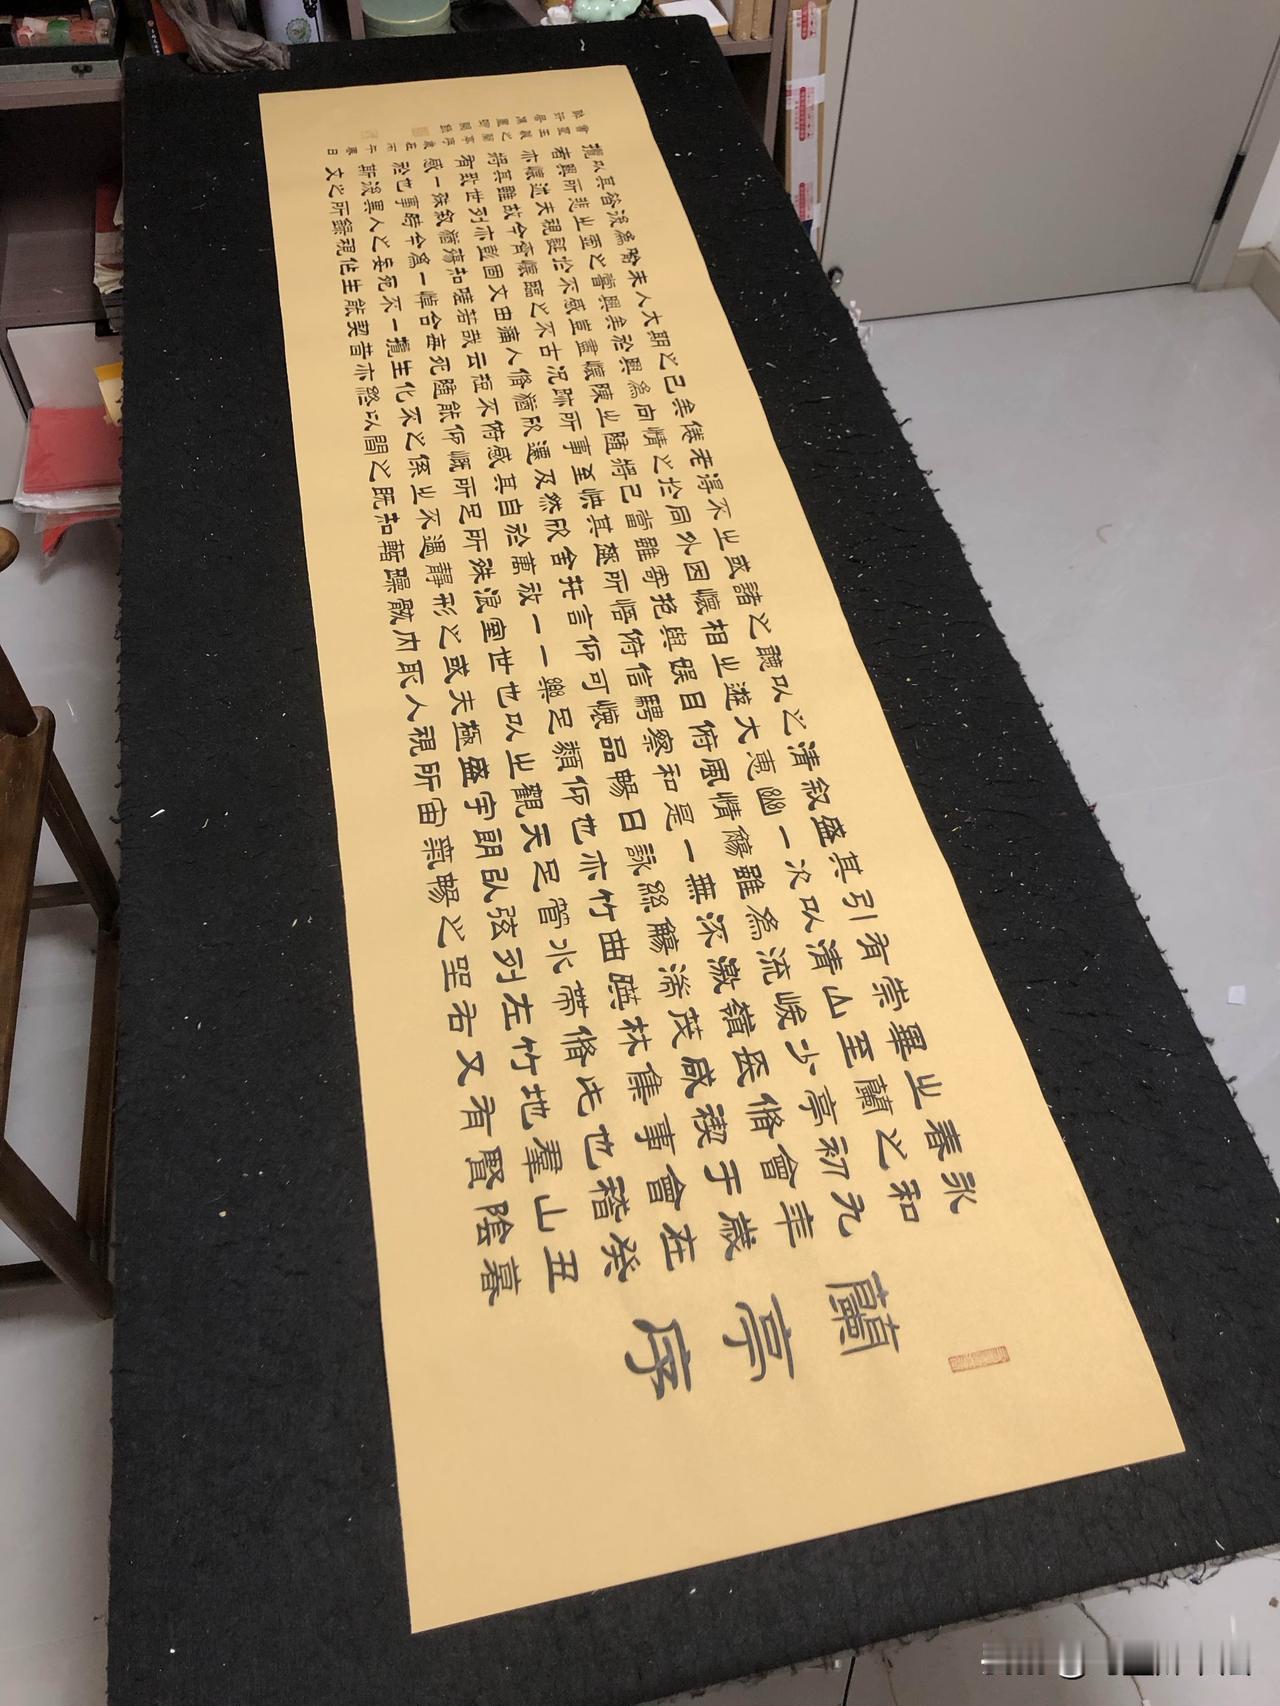 蘭亭序
永和九年歲在癸丑暮
春之初會于會稽山陰
之蘭亭脩禊事也羣賢
畢至少長咸集此地有
崇山峻嶺茂林脩竹又
有清流激湍暎帶左右
引以為流觴曲水列坐
其次雖無絲竹管弦之
盛一觴一詠亦足以暢
敘幽情是日也天朗氣
清惠風和暢仰觀宇宙
之大俯察品類之盛所
以遊目騁懷足以極視
聽之娛信可樂也夫人
之相與俯仰一世或取
諸懷抱悟言一室之內
或因寄所託放浪形骸
之外雖趣舍萬殊靜躁
不同當其欣於所遇暫
得於己怏然自足不知
老之將至及其所之既
倦情隨事遷感慨係之
矣向之所欣俯仰之間
已為陳跡猶不能不以
之興懷況脩短隨化終
期於盡古人云死生亦
大矣豈不痛哉每攬昔
人興感之由若合一契
未嘗不臨文嗟悼不能
喻之於懷固知一死生
為虛誕齊彭殤為妄作
後之視今亦猶今之視
昔悲夫故列敘時人錄
其所述雖世殊事異所
以興懷其致一也後之
攬者亦將有感於斯文